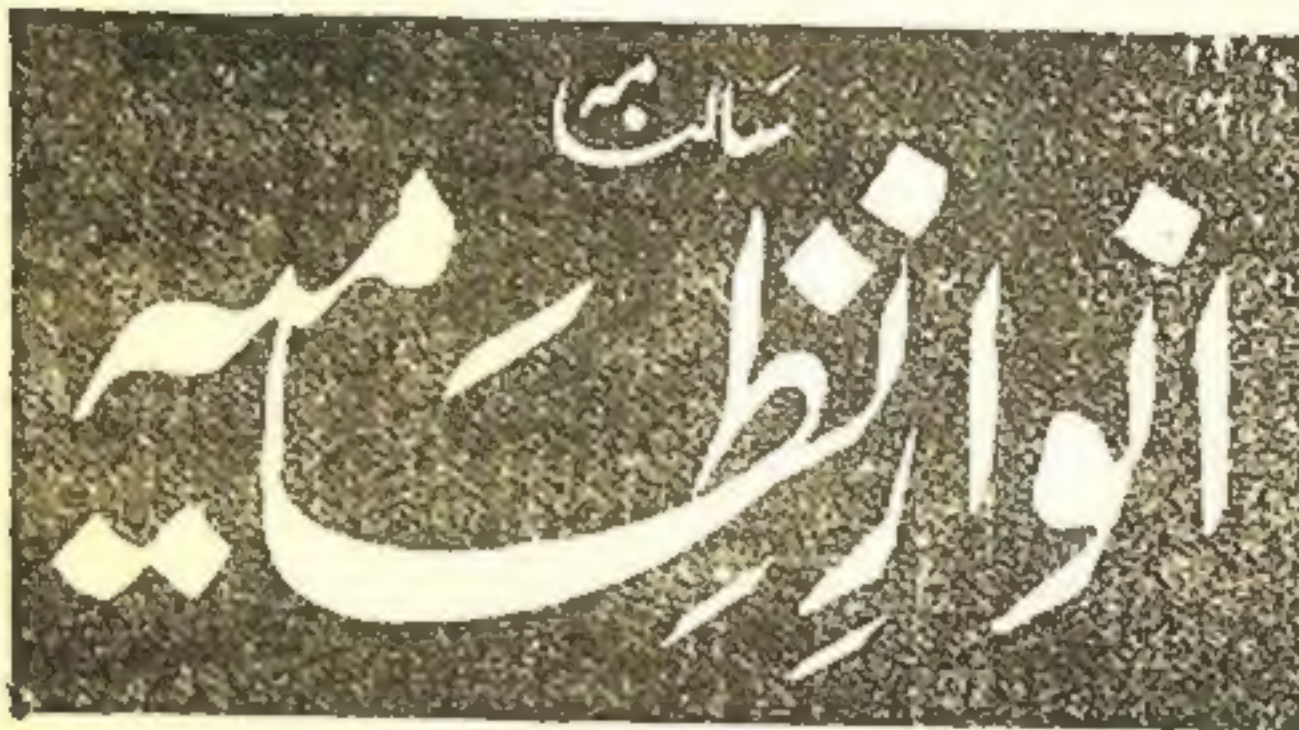 سالنامہ
انوارِ نظامیہ